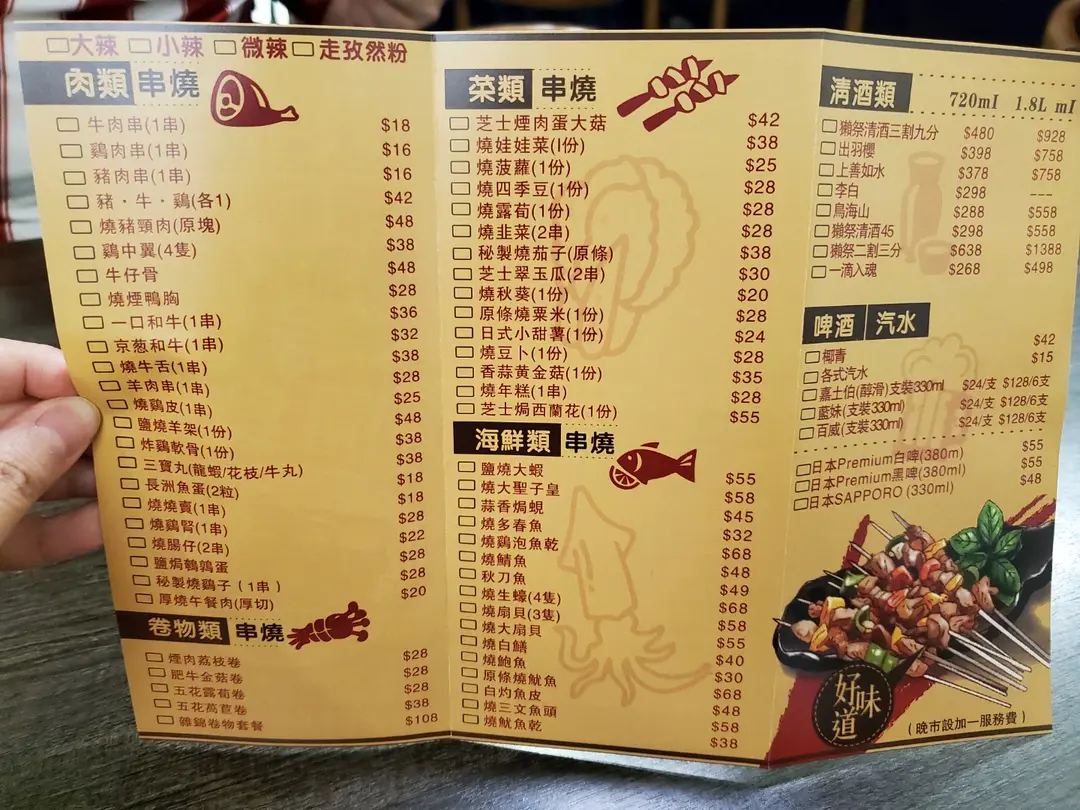 □大辣 □小辣 □微辣 □走孜然粉
肉類 串燒
牛肉串(1串) $18
鷄肉串(1串) $16
豬肉串(1串) $16
豬・牛・鷄(各1) $42
燒豬頸肉(原塊) $48
鷄中翼(4隻) $38
牛仔骨 $48
燒煙鴨胸 $28
一口和牛(1串) $36
京葱和牛(1串) $32
燒牛舌(1串) $38
羊肉串(1串) $28
燒鷄皮(1串) $25
鹽燒羊架(1份) $48
炸鷄軟骨(1份) $38
三寶丸(龍蝦/花枝/牛丸) $38
長洲魚蛋(2粒) $18
燒燒賣(1串) $18
燒鷄腎(1串) $28
燒腸仔(2串) $22
鹽焗鵪鶉蛋 $28
秘製燒鷄子(1串) $28
厚燒午餐肉(厚切) $20
卷物類 串燒
煙肉荔枝卷 $28
肥牛金菇卷 $28
五花露荀卷 $28
五花萵苣卷 $38
雜錦卷物套餐 $108
菜類 串燒
芝士煙肉蛋大菇 $42
燒娃娃菜(I份) $38
燒菠蘿(1份) $25
燒四季豆(1份) $28
燒露荀(1份) $28
燒韭菜(2串) $28
秘製燒茄子(原條) $38
芝士翠玉瓜(2串) $30
燒秋葵(1份) $20
原條燒粟米(1份) $28
日式小甜薯(1份) $24
燒豆卜(1份) $28
香蒜黄金菇(1份) $35
燒年糕(1串) $28
芝士焗西蘭花(1份) $55
海鮮類 串燒
鹽燒大蝦 $55
燒大聖子皇 $58
蒜香焗蜆 $45
燒多春魚 $32
燒鷄泡魚乾 $68
燒鯖魚 $48
秋刀魚 $49
燒生蠔(4隻) $68
燒扇貝(3隻) $58
燒大扇貝 $55
燒白鱔 $40
燒鮑魚 $30
原條燒魷魚 $68
白灼魚皮 $48
燒三文魚頭 $58
燒魷魚乾 $38
清酒類 720ml 1.8L ml
獺祭清酒三割九分 $480 $928
出羽櫻 $398 $758
上善如水 $378 $758
李白 $298 ---
鳥海山 $288 $558
獺祭清酒45 $298 $558
獺祭二割三分 $638 $1388
一滴入魂 $268 $498
啤酒 汽水
椰青 $42
各式汽水 $15
嘉士伯(醇滑)支裝330ml $24/支 $128/6支
藍妹(支裝330ml) $24/支 $128/6支
百威(支裝330ml) $24/支 $128/6支
日本Premium白啤(380m) $55
日本Premium黑啤(380ml) $55
日本SAPPORO(330ml) $48
好味道
(晚市設加一服務費)